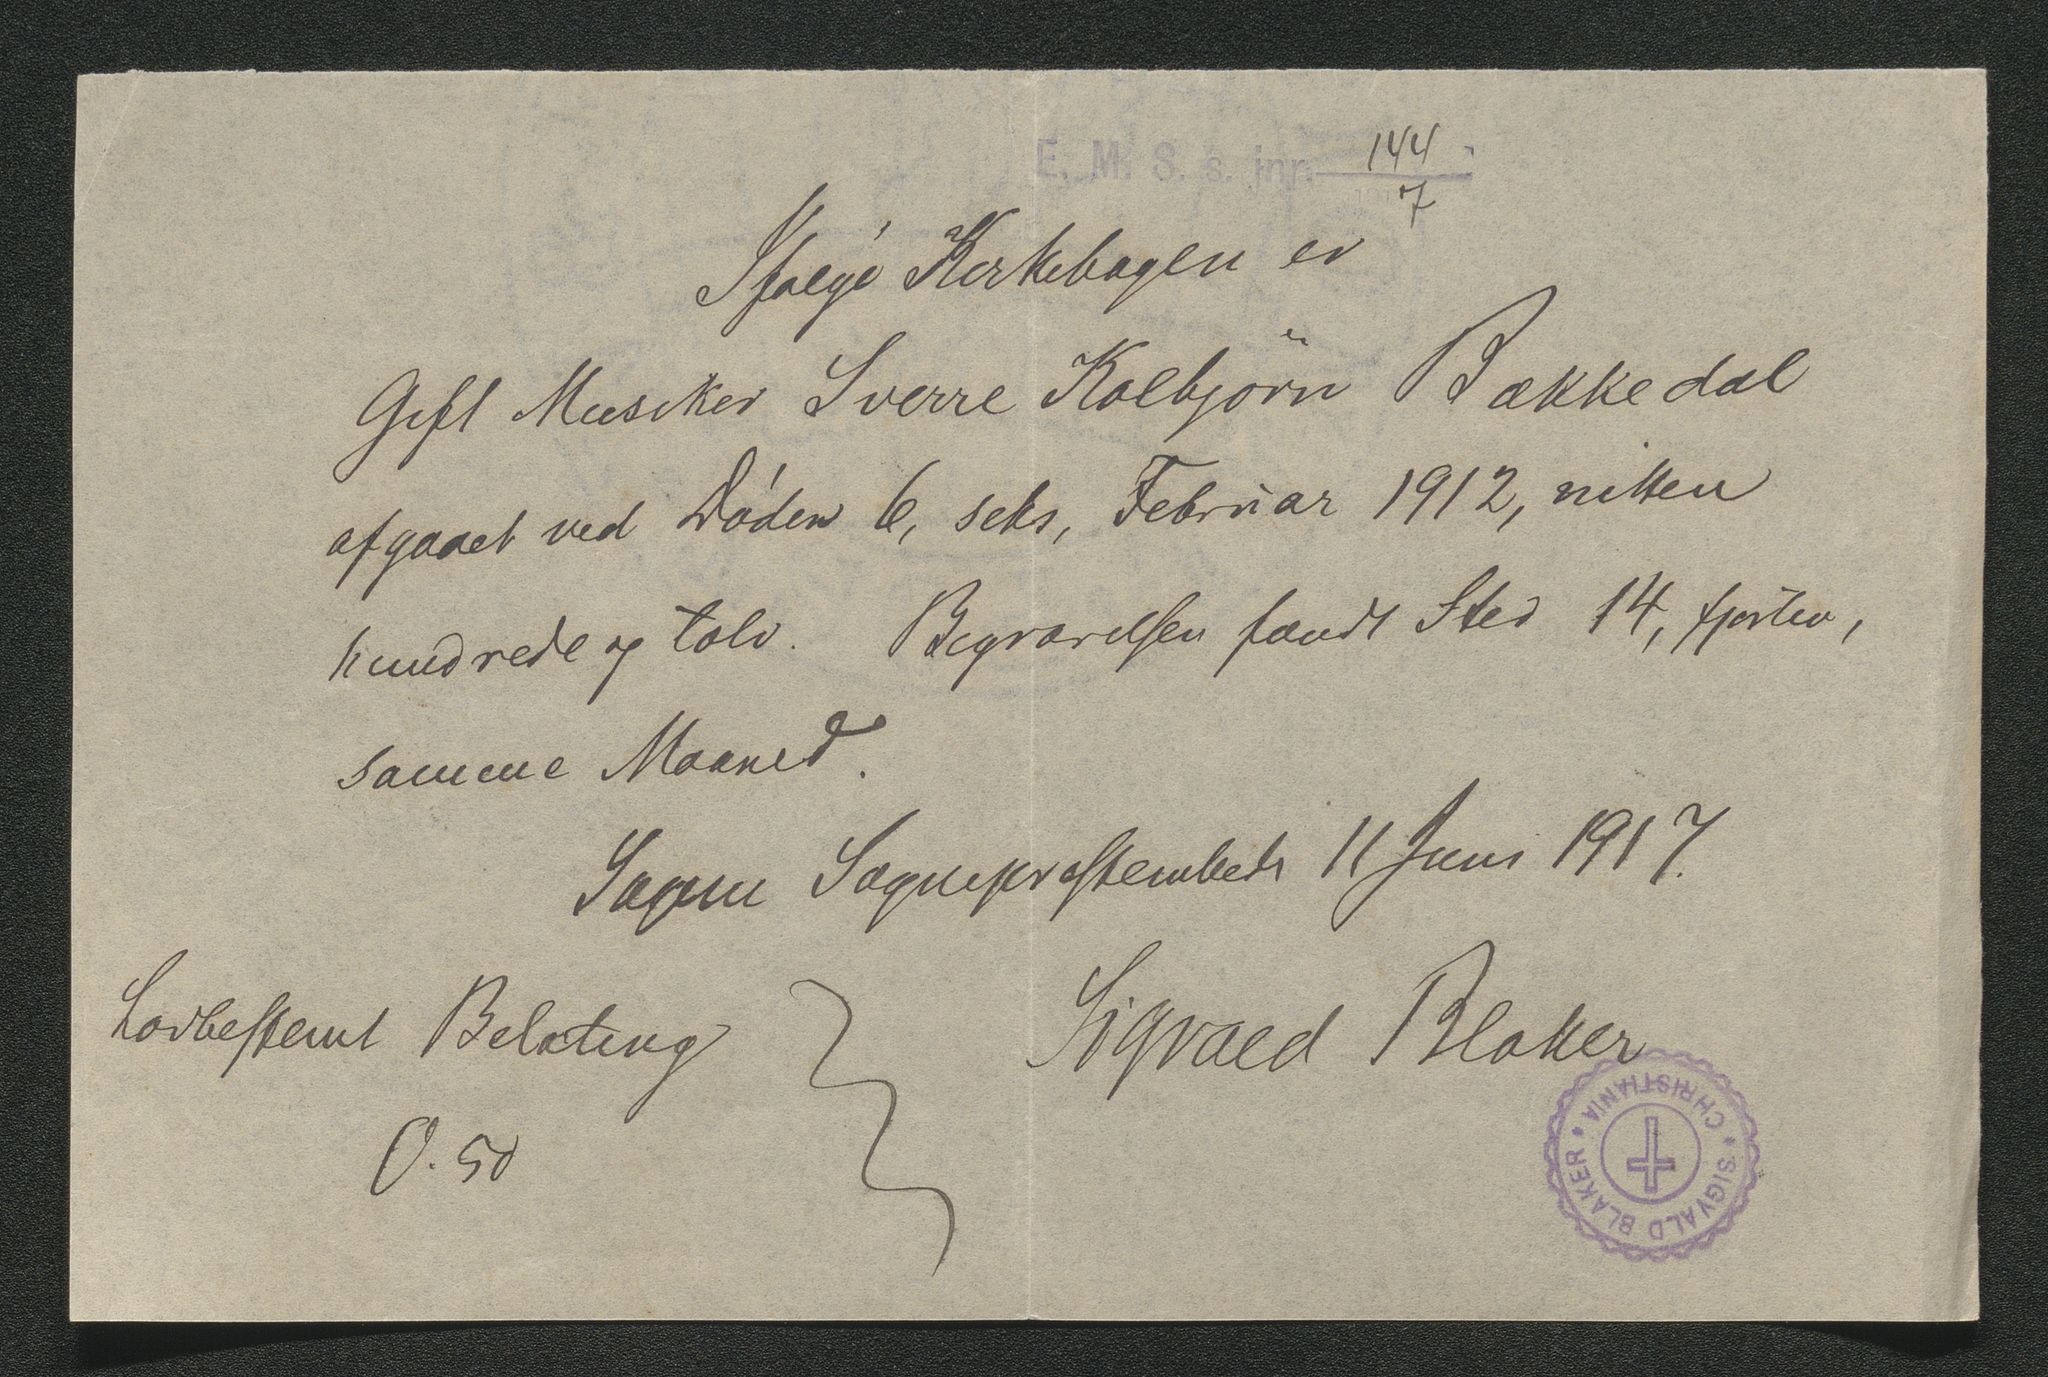 E. M. S. s. jnr. 144
7
Ifølge Kirkebogen er
Gift Musiker Sverre Kolbjörn Bækkedal
afgaaet ved Døden 6, seks, Februar 1912, nitten
hundrede og tolv. Begravelsen fandt Sted 14, fjorten,
samme Maaned.
Sagene Sogneprestembede 11 Juni 1917.
Lovbestemt Betaling
0.50
Sigvald Blaker
* SIGVALD BLAKER * CHRISTIANIA